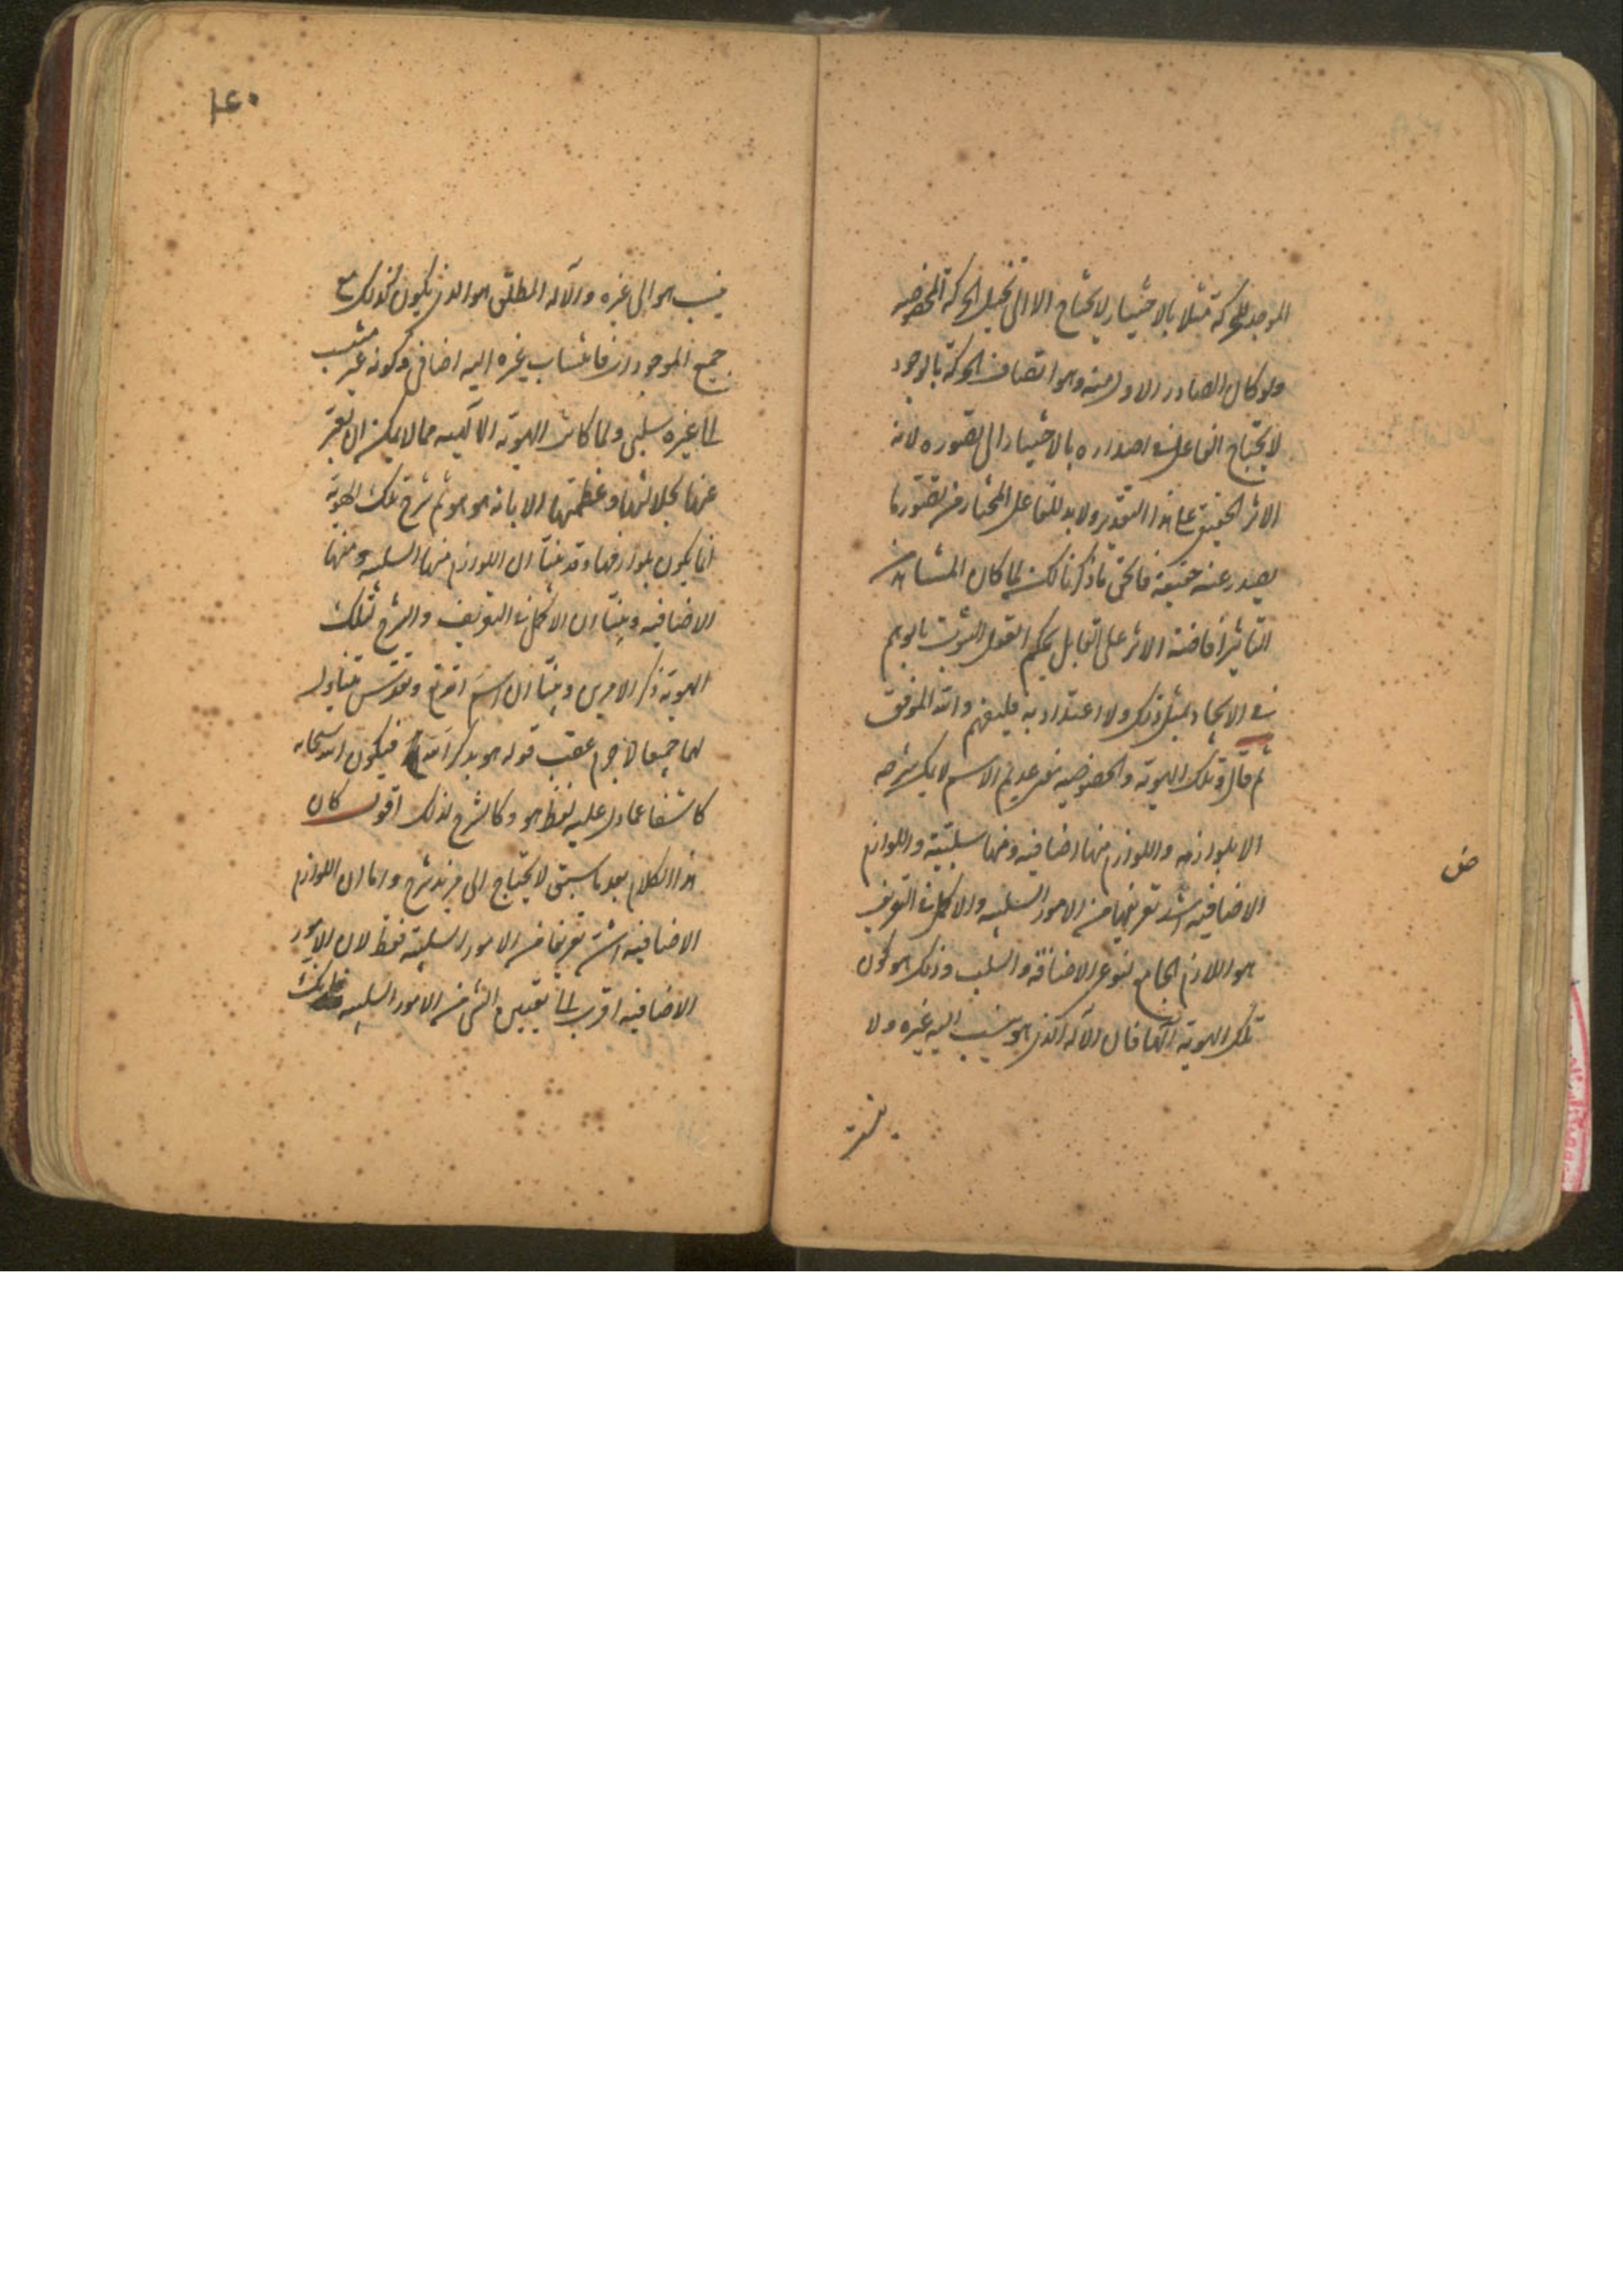 الموجد للحركة مثلا بالاختيار لا يحتاج الا الى تخيل الحركة المخصوصه
ولو كان الصادر الاول منه وهو اتصاف الحركة بالوجود
لا يحتاج الفاعل في اصداره بالاختيار الى تصوره لانه
الاثر الحقيقي على هذا التقدير ولا بد للفاعل المختار من تصور ما
يصدر عنه حقيقة فالحق ما ذكرنا لكن لما كان المشاهد من
التاثير افاضة الاثر على القابل يحكم العقل المشوب بالوهم
في الايجاد بمثل ذلك ولا اعتداد به فليفهم والله الموفق
ثم قال وتلك الهوية والخصوصيه غير عديم الاسم لا يمكن شرحه
الا بلوازمه واللوازم منها اضافيه ومنها سلبيّة واللوازم
الاضافيه اشد تعريفها من الامور السلبيه والاكمل في التعريف
هو اللازم الجامع لنوعي الاضافة والسلب وذلك هو كون
تلك الهوية الٓها فان الاٰله الذي هو ينسب اليه غيره ولا
ينسب
ض
١٤٠
ينسب هو الى غيره والاٰله المطلق هو الذي يكون كذلك مع
جميع الموجودات فانتساب غيره اليه اضافي وكونه غير منتسب
الى غيره سلبي ولما كانت الهويه الالٓهيه مما لا يمكن ان يعبر
عنها لجلالتها وعظمتها الا بانه هو هو ثم شرح تلك الهوية
انما يكون بلوازمها وقد بيّنا ان اللوازم منها السلبيه ومنها
الاضافيه وبيّنا ان الاكمل في التعريف والشرح لتلك
الهويه ذكر الامرين وبيّنا ان اسم الله تع وتقدس متناول
لهما جميعا لا جرم عقب قوله هو بذكر الله فيكون الله سبحانه
كاشفا عما دل عليه لفظ هو وكالشرح لذلك اقول كان
هذا الكلام بعد ما سبق لا يحتاج الى مزيد شرح واما ان اللوازم
الاضافيه اشد تعريفا من الامور السلبيّة فقط لان الامور
الاضافيه اقرب الى تعيين الشي من الامور السلبيه